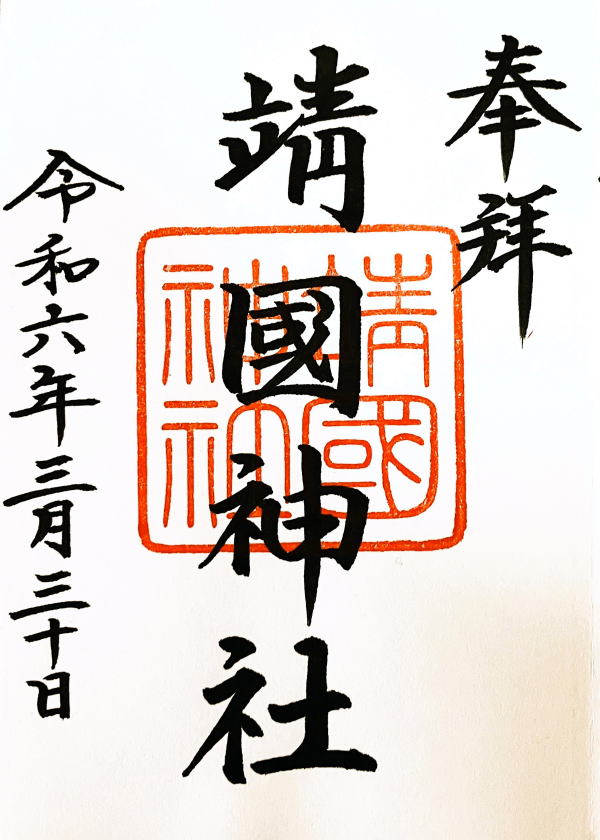 奉拝
靖國神社
靖國
神社
令和六年三月三十日